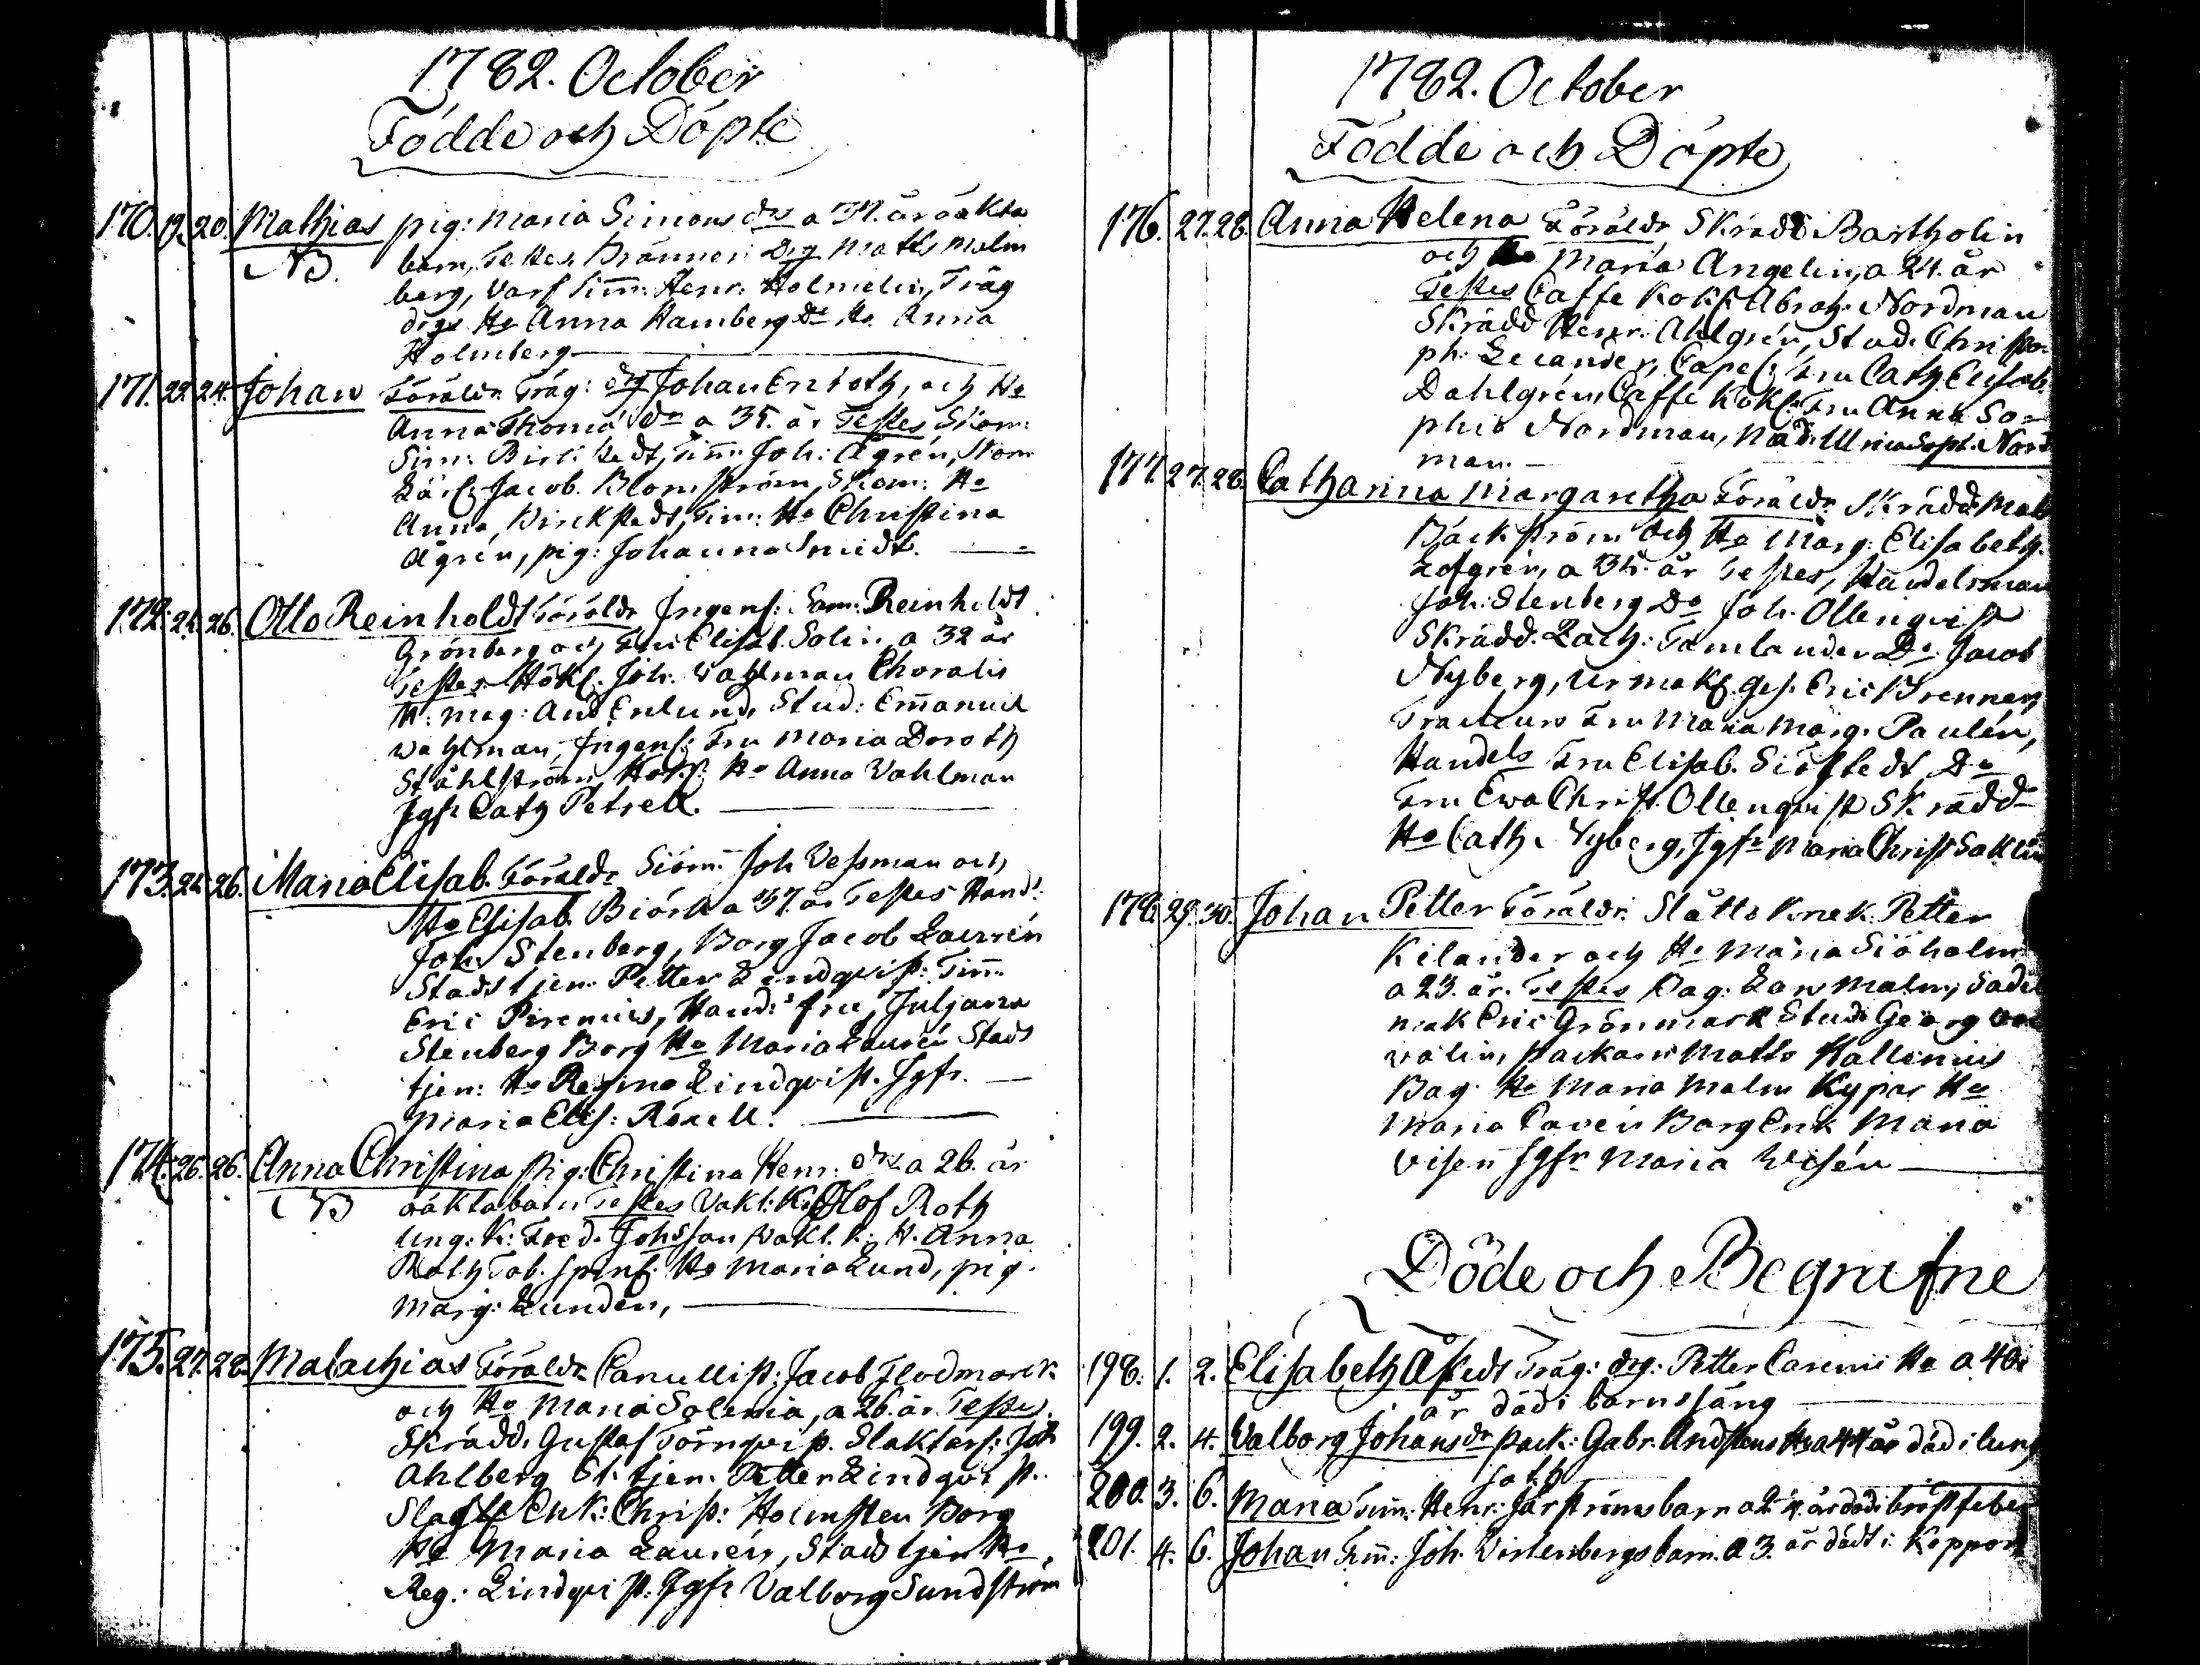 1782. October
Födde och Döpte
170. 19. 20. Mathias pig: Maria Simons dr a 37. år oäkta
NB. barn, Testes Bränneri Drg Matts Malm
berg, Varf Timm: Henr: Holmelin, Träg
drgs Ho Anna Hamberg Do Ho Anna
Holmberg
171. 23. 24. Johan Föräldr. Träg: drg Johan Enroth, och Ho
Anna Thomæ dr a 35. år Testes Skom:
Sim: Birkstedt, Timm: Joh: Ågrén, Skom
Lärl: Jacob Blomström, Skom: Ho
Anna Birckstedt, Tim: Ho Christina
Ågrén, pig: Johanna Smidt.
172. 24. 26. Otto Reinholdt Föräldr Ingens: Sam: Reinholdt
Grönberg och Fru Elisab. Solin, a 32 år
Testes Hökl. Joh. Wahlman Choralis
M: Mag: And Enlund, Stud: Emanuel
Wahlman, Ingens: Fru Maria Doroth
Ståhlström, Hökl: Ho Anna Wahlman
Jgfr Cath Petrell.
173. 24. 26. Maria Elisab. Föräldr Siöm: Joh Wessman och
Ho Elisab. Biörk a 37. år Testes Hand:
Joh: Stenberg, Borg Jacob Laurén
Stadstjen. Petter Lindqvist: Timm
Eric Pirenius, Hand: fru, Juljana
Stenberg Borg Ho Maria Laurén Stads
tjen: Ho Regina Lindqvist. Jgfr.
Maria Elis: Roxell.
174. 26. 26. Anna Christina Pig: Christina Henr: dr a 26. år
NB oäkta barn Testes Vakt: K: Olof Roth
Ung: K: Fred. Johsson Wakt. K: H. Anna
Roth Tob. spins: Ho Maria Lund, pig.
Marg: Lunden,
175. 27. 28. Malachias Föräldr Canullist: Jacob Flodmarck
och Ho Maria Solenia, a 26. år Testes
Skrädd. Gustaf Törnqvist. Slaktars: Joh
Ahlberg St. tjen. Petter Lindqvist.
Slagt Enk: Christ: Holmsten Borg
Ho Maria Laurén, Stadstjen Ho
Reg: Lindqvist. Jgfr Valborg Sundström
1782. October
Födde och Döpte
176. 27. 28. Anna Helena Föräldr Skrädd Bartholin
och Ho Maria Angelin, a 24. år
Testes Caffe Kokl Abrah. Nordman
Skrädd Henr. Ahlgrén, Stud. Christo
ph. Lecander, Capels: Fru Cath Elisab.
Dahlgrén, Caffe Kokl: Fru Anna So
phia Nordman, Mad. Ulrica Soph. Nord
man.
177. 27. 28. Catharina Margaretha Föräldr. Skrädd Mat
Bäckström och Ho Marg: Elisabeth
Lofgrén, a 35. år Testes, Handelsman
Joh: Stenberg Do Joh. Ollenqvist
Skrädd. Zach: Tamlander Do. Jacob
Nyberg, Urmak. ges. Eric Brenner
Tracteurs Fru Maria Marg. Paulén,
Handels Fru Elisab. Siöstedt Do
Fru Ewa Christ. Ollenqvist Skrädd
Ho Cath. Nyberg, Jgfr Maria Christ Saklin
178. 29. 30. Johan Petter Föräldr. Slåtts Knek. Petter
Kilander och Ho Maria Siöholm
a 23. år. Testes Bag. Lars Malm, Sadel
mak Eric Grönmark Stud. Georg
valin, packare Matts Hallenius
Bag. Ho Maria Malm Kypar Ho
Maria Cavén Borg Enk Maria
Visen Jgfr Maria Visén
Döde och Begrafne
198. 1. 2. Elisabeth Åstedt Träg: drg: Petter Carenii Ho a 40
år död i barnssäng
199. 2. 4. Walborg Johansdr pack: Gabr. Andstens Ho a 44 år död i lung
soth
200. 3. 6. Maria Tim: Henr: Järströms barn a 2 år död i bröstfeber
201. 4. 6. Johan Tim: Joh. Wirtenbergs barn. a 3. år död i Koppor